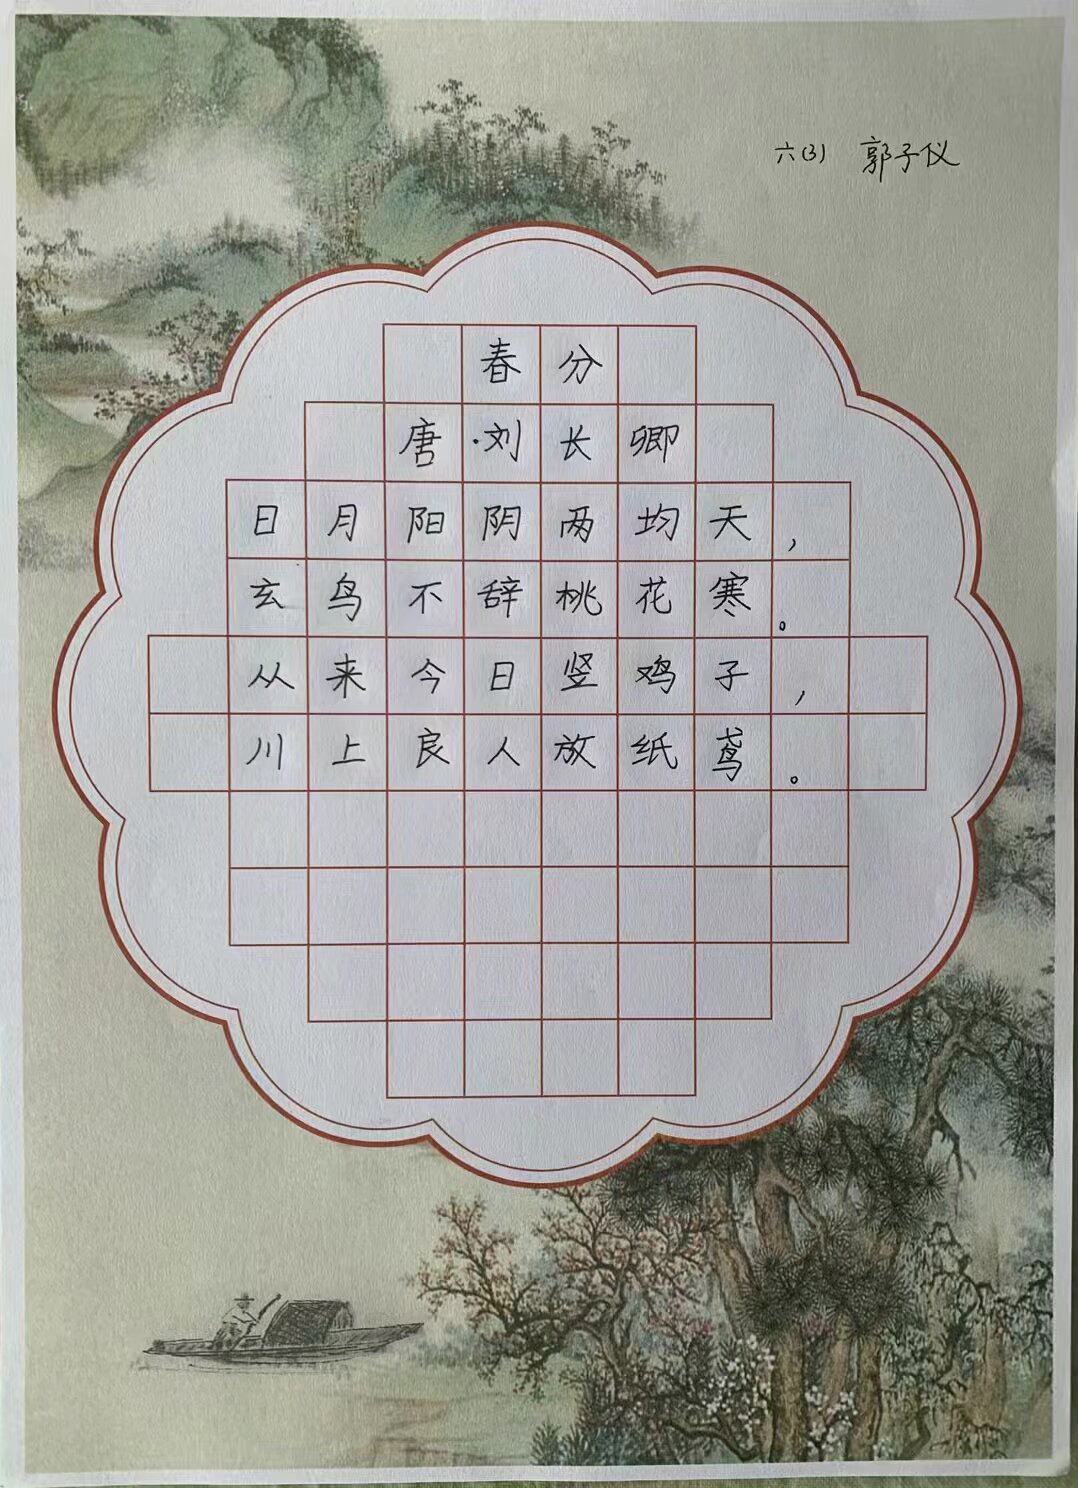 六(3) 郭子仪
春分
唐·刘长卿
日月阳阴两均天，
玄鸟不辞桃花寒。
从来今日竖鸡子，
川上良人放纸鸢。